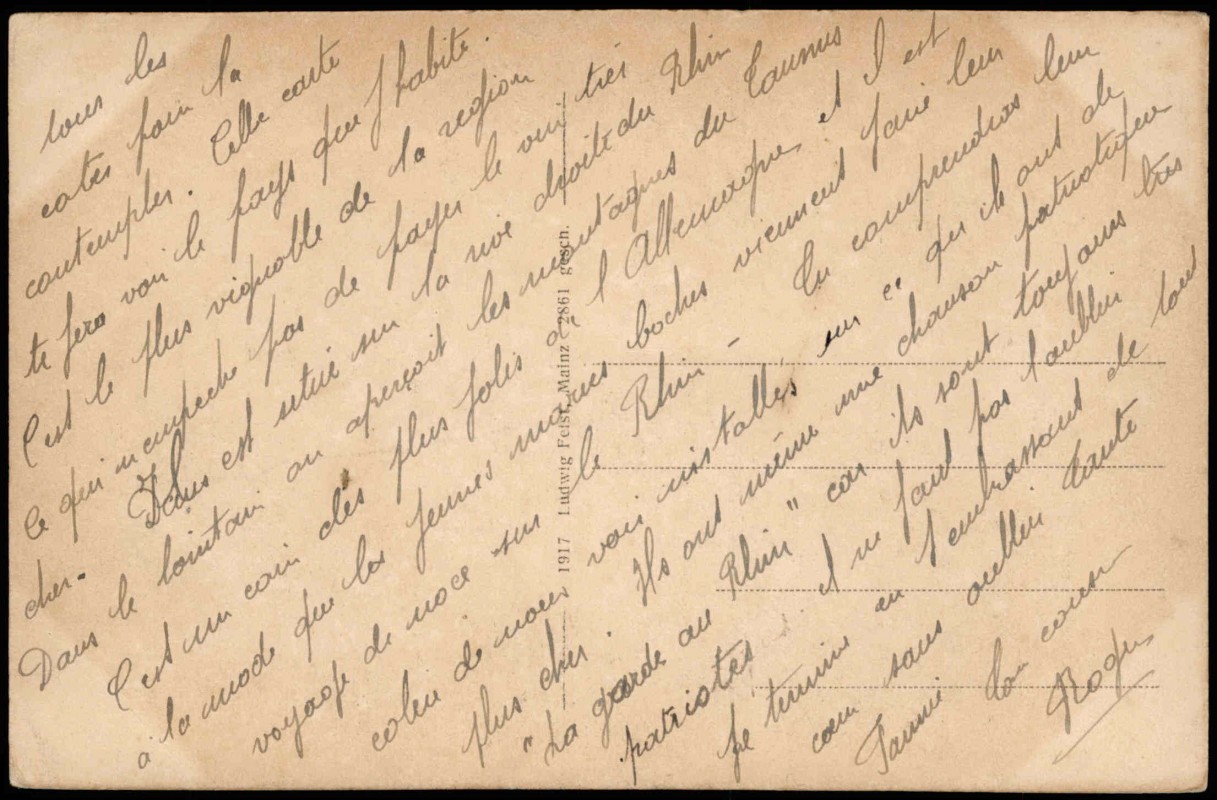 tous les
cotés pour la
contempler. Cette carte
te fera voir le pays que j'habite.
C'est le plus vignoble de la region
ce qui n'empeche pas de payer le vin très
cher. Il est situé sur la rive droite du Rhin
Dans le lointain on aperçoit les montagnes du Taunus
C'est un coin des plus jolis de l'Allemagne et il est
à la mode que les jeunes mariés boches viennent faire leur
voyage de noce sur le Rhin - Tu comprendras leur
colere de nous voir installés sur ce qu'ils ont de
plus cher. Ils ont même une chanson patriotique
"La garde au Rhin" car ils sont toujours très
patriotes et il ne faut pas l'oublier
je termine en t'embrassant de tout
cœur sans oublier tante
Fannie Ton cousin
Roger
1917 Ludwig Feist, Mainz 2861 gesch.